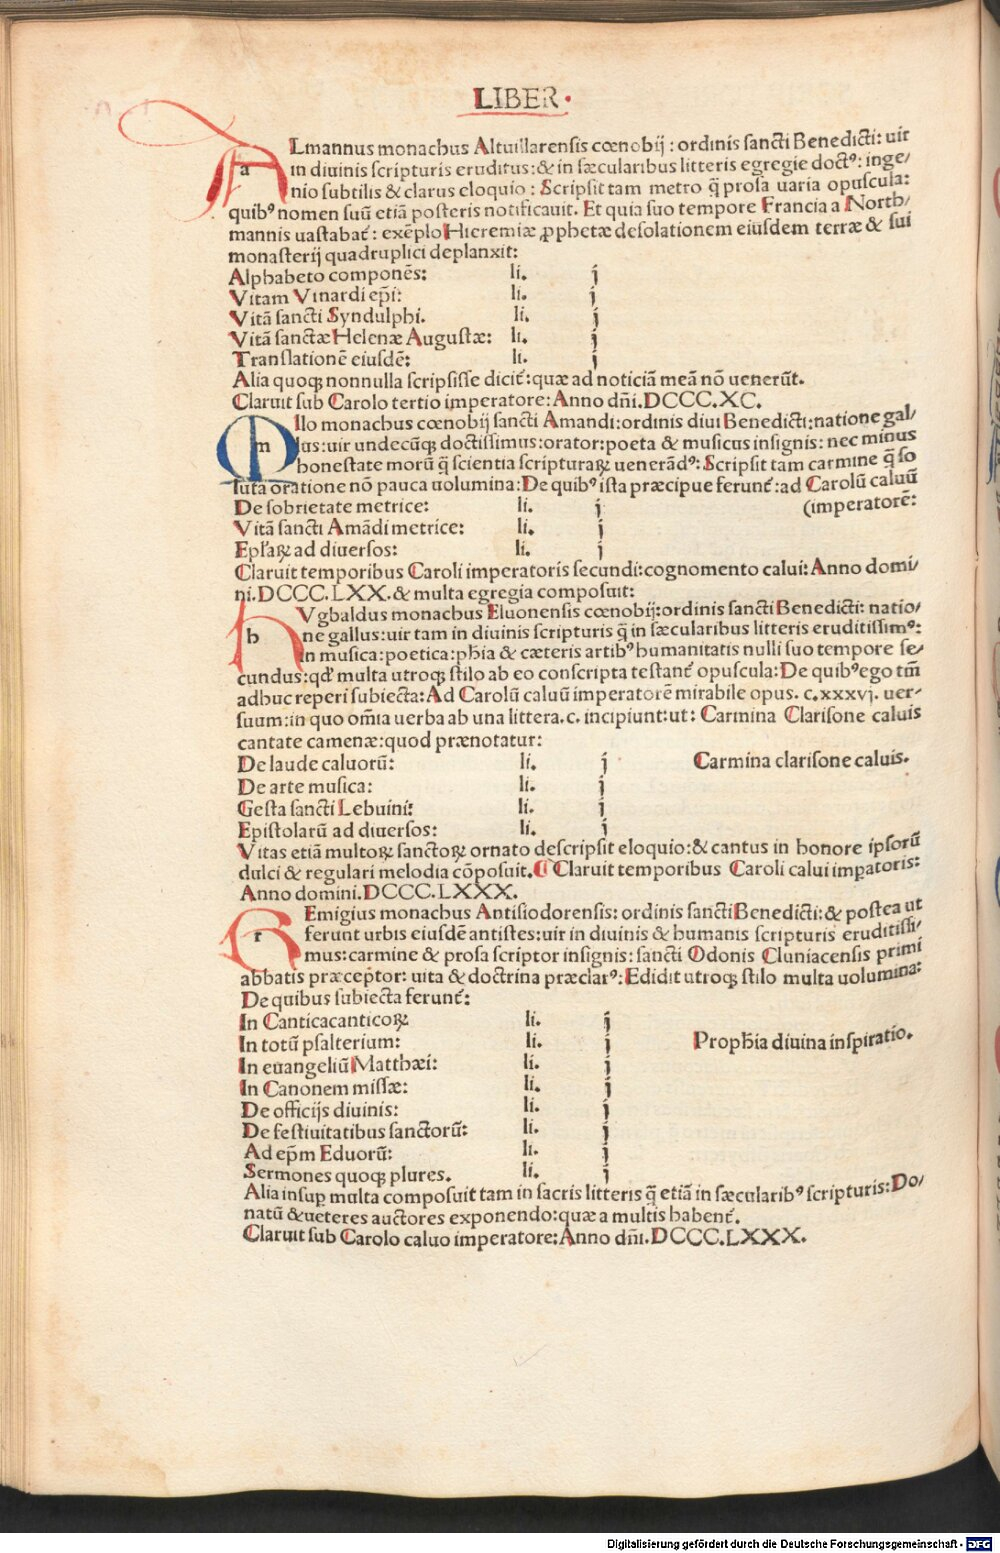 LIBER.
ALmannus monachus Altuillarensis cœnobij: ordinis sancti Benedicti: uir
in diuinis scripturis eruditus: & in sæcularibus litteris egregie doctꝰ: inge/
nio subtilis & clarus eloquio: Scripsit tam metro q̃ prosa uaria opuscula:
quibꝰ nomen suũ etiã posteris notificauit. Et quia suo tempore Francia a North/
mannis uastabat̃: exẽplo Hieremiæ ꝓphetæ desolationem eiusdem terræ & sui
monasterij quadruplici deplanxit:
Alphabeto componẽs: li. j
Vitam Vinardi ep̃i: li. j
Vitã sancti Syndulphi. li. j
Vitã sanctæ Helenæ Augustæ: li. j
Translationẽ eiusdẽ: li. j
Alia quoqꝫ nonnulla scripsisse dicit̃: quæ ad noticiã meã nõ uenerũt.
Claruit sub Carolo tertio imperatore: Anno dñi. DCCC.XC.
MIlo monachus cœnobij sancti Amandi: ordinis diui Benedicti: natione gal/
lus: uir undecũqꝫ doctissimus: orator: poeta & musicus insignis: nec minus
honestate morũ q̃ scientia scripturaꝝ uenerãdꝰ: Scripsit tam carmine q̃ so
luta oratione nõ pauca uolumina: De quibꝰ ista præcipue ferunt̃: ad Carolũ caluũ
De sobrietate metrice: li. j (imperatorẽ:
Vitã sancti Amãdi metrice: li. j
Epl̃aꝝ ad diuersos: li. j
Claruit temporibus Caroli imperatoris secundi: cognomento calui: Anno domi/
ni. DCCC.LXX. & multa egregia composuit:
hVgbaldus monachus Eluonensis cœnobij: ordinis sancti Benedicti: natio/
ne gallus: uir tam in diuinis scripturis q̃ in sæcularibus litteris eruditissimꝰ:
in musica: poetica: ph̃ia & cæteris artibꝰ humanitatis nulli suo tempore se/
cundus: qd' multa utroqꝫ stilo ab eo conscripta testant̃ opuscula: De quibꝰ ego tm̃
adhuc reperi subiecta: Ad Carolũ caluũ imperatorẽ mirabile opus. c.xxxvj. uer/
suum: in quo om̃ia uerba ab una littera. c. incipiunt: ut: Carmina Clarisone caluis
cantate camenæ: quod prænotatur:
De laude caluorũ: li. j Carmina clarisone caluis.
De arte musica: li. j
Gesta sancti Lebuini: li. j
Epistolarũ ad diuersos: li. j
Vitas etiã multoꝝ sanctoꝝ ornato descripsit eloquio: & cantus in honore ipsorũ
dulci & regulari melodia cõposuit. ¶ Claruit temporibus Caroli calui imꝑatoris:
Anno domini. DCCC.LXXX.
REmigius monachus Antisiodorensis: ordinis sancti Benedicti: & postea ut
ferunt urbis eiusdẽ antistes: uir in diuinis & humanis scripturis eruditissi/
mus: carmine & prosa scriptor insignis: sancti Odonis Cluniacensis primi
abbatis præceptor: uita & doctrina præclarꝰ: Edidit utroqꝫ stilo multa uolumina:
De quibus subiecta ferunt̃:
In Cantica canticoꝝ li. j
In totũ psalterium: li. j Proph̃ia diuina inspiratio.
In euangeliũ Matthæi: li. j
In Canonem missæ: li. j
De officijs diuinis: li. j
De festiuitatibus sanctorũ: li. j
Ad ep̃m Eduorũ: li. j
Sermones quoqꝫ plures. li. j
Alia insuꝑ multa composuit tam in sacris litteris q̃ etiã in sæcularibꝰ scripturis: Do/
natũ & ueteres auctores exponendo: quæ a multis habent̃.
Claruit sub Carolo caluo imperatore: Anno dñi. DCCC.LXXX.
Digitalisierung gefördert durch die Deutsche Forschungsgemeinschaft - DFG